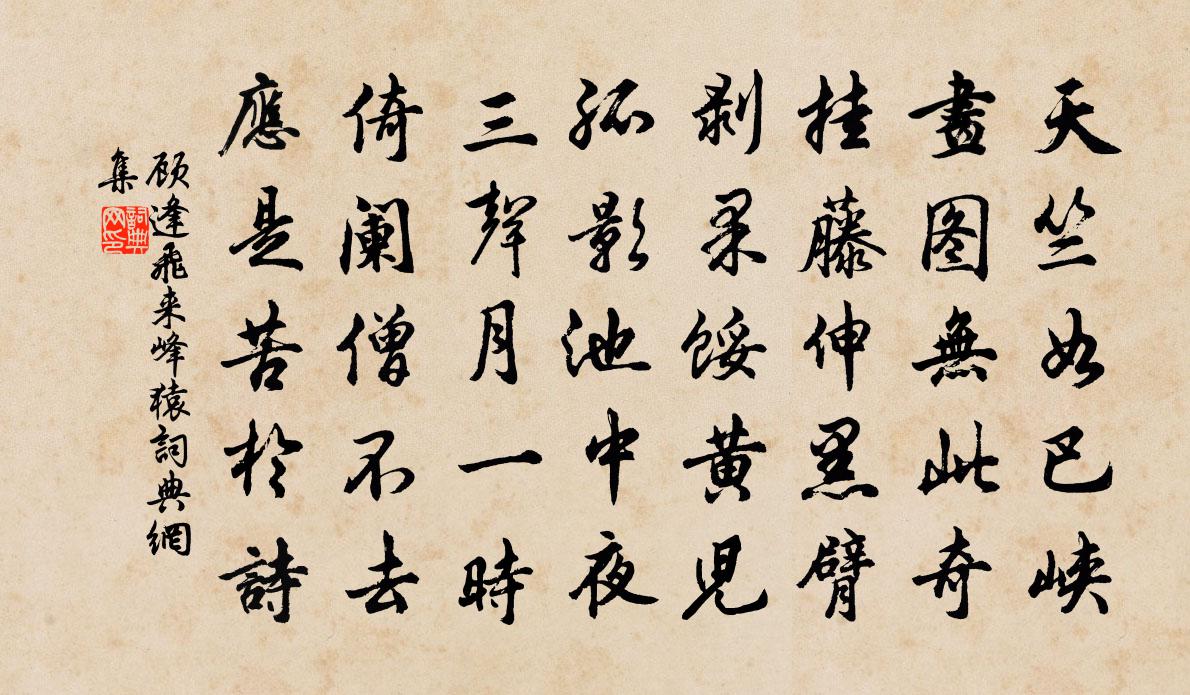 天竺如巴峡
畫图無此奇
挂藤伸黑臂
剥果餒黄兒
孤影池中夜
三聲月一時
倚阑僧不去
應是苦於詩
顾逢飛来峰猿詞典網
集
詞典网印